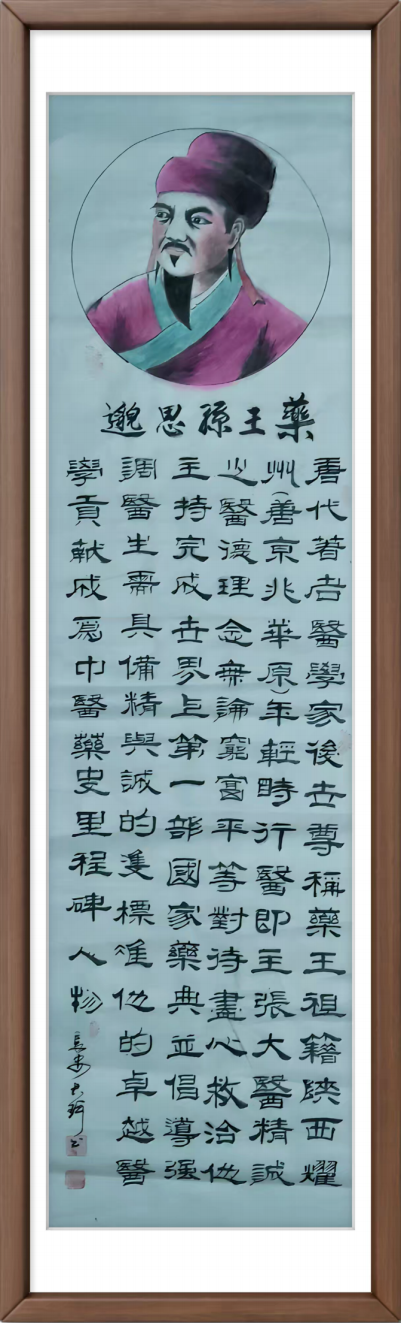 藥王孫思邈
唐代著名醫學家後世尊稱藥王祖籍陝西耀
州(善京兆華原)年輕時行醫即主張大醫精誠
之醫德理念無論窮富平等對待盡心救治他
主持完成世界上第一部國家藥典並倡導强
調醫生需具備精與誠的隻標准他的卓越醫
學貢献成爲中醫藥史里程碑人物
長安